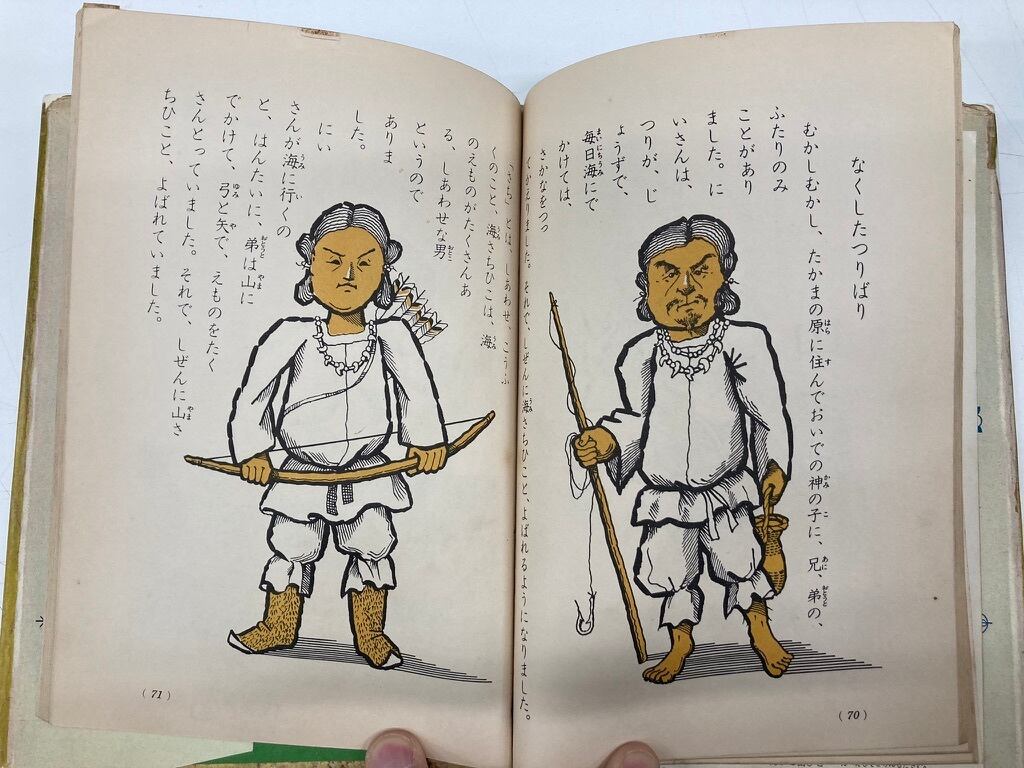 なくしたつりばり
むかしむかし、たかまの原に住んでおいでの神の子に、兄、弟の、
ふたりのみ
ことがあり
ました。に
いさんは、
つりが、じ
ょうずで、
毎日海にで
かけては、
さかなをつっ
てかえりました。それで、しぜんに海さちひこと、よばれるようになりました。
(70)
「さち」とは、しあわせ、こうふ
くのこと、海さちひこは、海
のえものがたくさんあ
る、しあわせな男
というので
ありま
した。
にい
さんが海に行くの
と、はんたいに、弟は山に
でかけて、弓と矢で、えものをたく
さんとっていました。それで、しぜんに山さ
ちひこと、よばれていました。
(71)